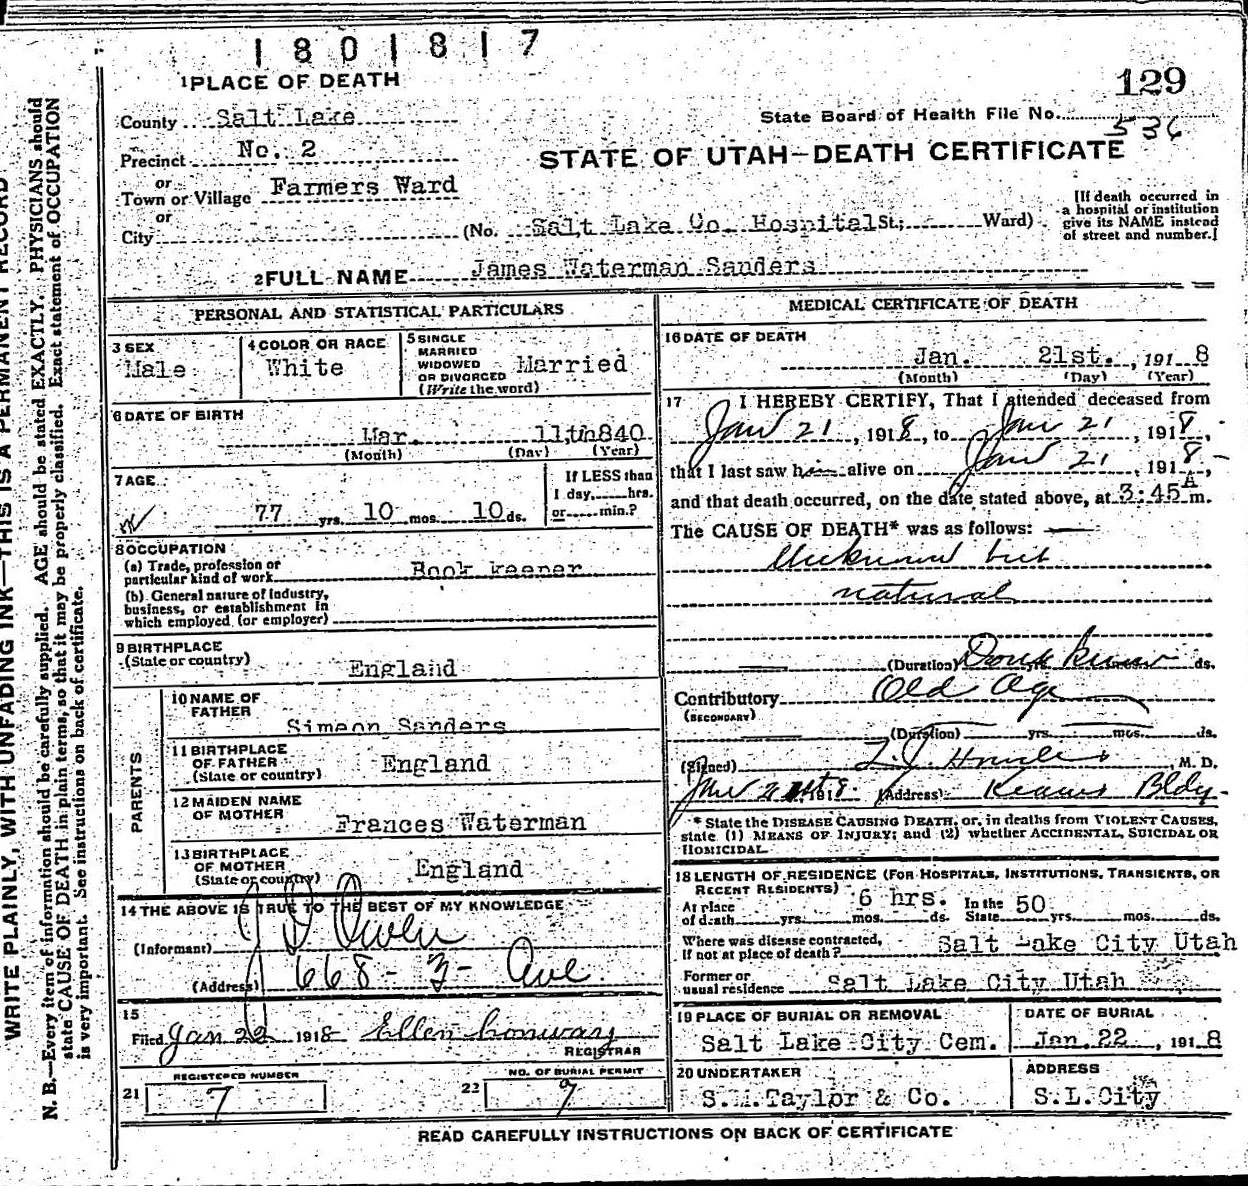 1801817
129
1 PLACE OF DEATH
County Salt Lake
State Board of Health File No. 536
Precinct No. 2
STATE OF UTAH—DEATH CERTIFICATE
or
Town or Village Farmers Ward
or
City (No. Salt Lake Co. Hospital St.; Ward)
[If death occurred in
a hospital or institution
give its NAME instead
of street and number.]
2 FULL NAME James Waterman Sanders
PERSONAL AND STATISTICAL PARTICULARS
3 SEX
Male
4 COLOR OR RACE
White
5 SINGLE
MARRIED
WIDOWED
OR DIVORCED
(Write the word)
Married
6 DATE OF BIRTH
Mar. 11th 840
(Month) (Day) (Year)
7 AGE
77 yrs. 10 mos. 10 ds.
If LESS than
1 day, hrs.
or min.?
8 OCCUPATION
(a) Trade, profession or
particular kind of work Book keeper
(b) General nature of industry,
business, or establishment in
which employed (or employer)
9 BIRTHPLACE
(State or country) England
PARENTS
10 NAME OF
FATHER
Simeon Sanders
11 BIRTHPLACE
OF FATHER
(State or country) England
12 MAIDEN NAME
OF MOTHER
Frances Waterman
13 BIRTHPLACE
OF MOTHER
(State or country) England
14 THE ABOVE IS TRUE TO THE BEST OF MY KNOWLEDGE
(Informant) J D Owen
(Address) 668-3- Ave.
15
Filed Jan 22 1918 Ellen Conway
REGISTRAR
REGISTERED NUMBER
21 7
NO. OF BURIAL PERMIT
22 7
MEDICAL CERTIFICATE OF DEATH
16 DATE OF DEATH
Jan. 21st. , 191 8
(Month) (Day) (Year)
17 I HEREBY CERTIFY, That I attended deceased from
Jan 21 , 1918, to Jan 21 , 1918,
that I last saw him alive on Jan 21 , 1918,
and that death occurred, on the date stated above, at 3:45 A m.
The CAUSE OF DEATH* was as follows:
Unknown but
natural
(Duration) Dont know ds.
Contributory Old Age
(SECONDARY)
(Duration) yrs. mos. ds.
(Signed) , M. D.
Jan 21st 1918. (Address) Kearns Bldg.
* State the DISEASE CAUSING DEATH, or, in deaths from VIOLENT CAUSES,
state (1) MEANS OF INJURY; and (2) whether ACCIDENTAL, SUICIDAL OR
HOMICIDAL.
18 LENGTH OF RESIDENCE (FOR HOSPITALS, INSTITUTIONS, TRANSIENTS, OR
RECENT RESIDENTS)
At place
of death yrs. mos. ds. 6 hrs. In the
State 50 yrs. mos. ds.
Where was disease contracted,
if not at place of death? Salt Lake City Utah
Former or
usual residence Salt Lake City Utah
19 PLACE OF BURIAL OR REMOVAL
Salt Lake City Cem.
DATE OF BURIAL
Jan. 22 , 191 8
20 UNDERTAKER
S.M. Taylor & Co.
ADDRESS
S.L. City
READ CAREFULLY INSTRUCTIONS ON BACK OF CERTIFICATE
WRITE PLAINLY, WITH UNFADING INK—THIS IS A PERMANENT RECORD
N. B.—Every item of information should be carefully supplied. AGE should be stated EXACTLY. PHYSICIANS should
state CAUSE OF DEATH in plain terms, so that it may be properly classified. Exact statement of OCCUPATION
is very important. See instructions on back of certificate.